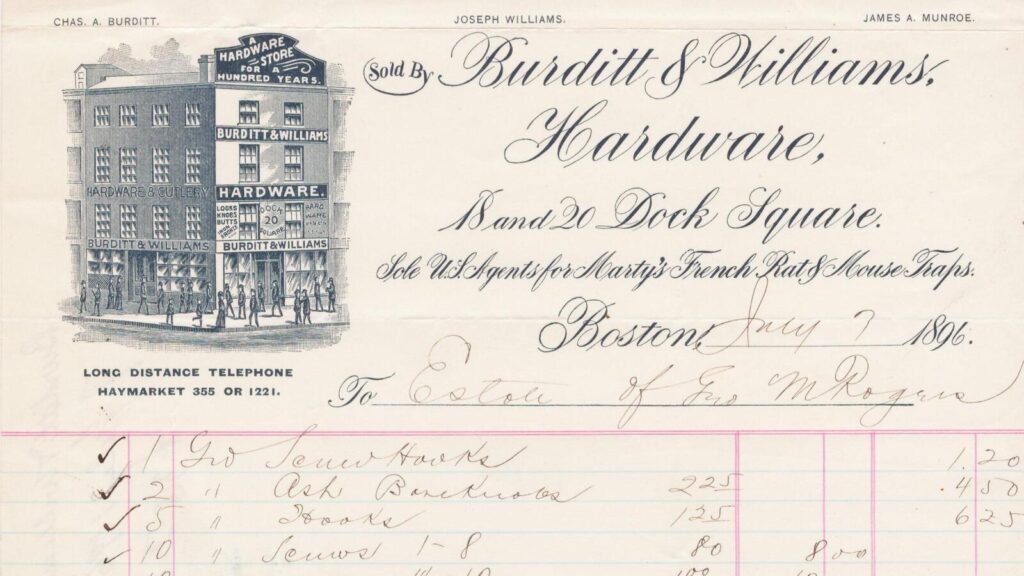 CHAS. A. BURDITT.
JOSEPH WILLIAMS.
JAMES A. MUNROE.
A
HARDWARE
STORE
FOR A
HUNDRED YEARS.
BURDITT & WILLIAMS
HARDWARE & CUTLERY
HARDWARE.
LOCKS
KNOBS
BUTTS
DOCK
20
SQUARE
HARD
WARE
BURDITT & WILLIAMS
BURDITT & WILLIAMS
LONG DISTANCE TELEPHONE
HAYMARKET 355 OR 1221.
Sold By Burditt & Williams,
Hardware,
18 and 20 Dock Square.
Sole U.S. Agents for Marty's French Rat & Mouse Traps.
Boston, July 7 1896.
To Estate of Geo M Rogers
1 Gro Screw Hooks 1.20
2 " Ash Base Knobs 225 .450
5 " Hooks 125 625
10 " Screws 1-8 80 800